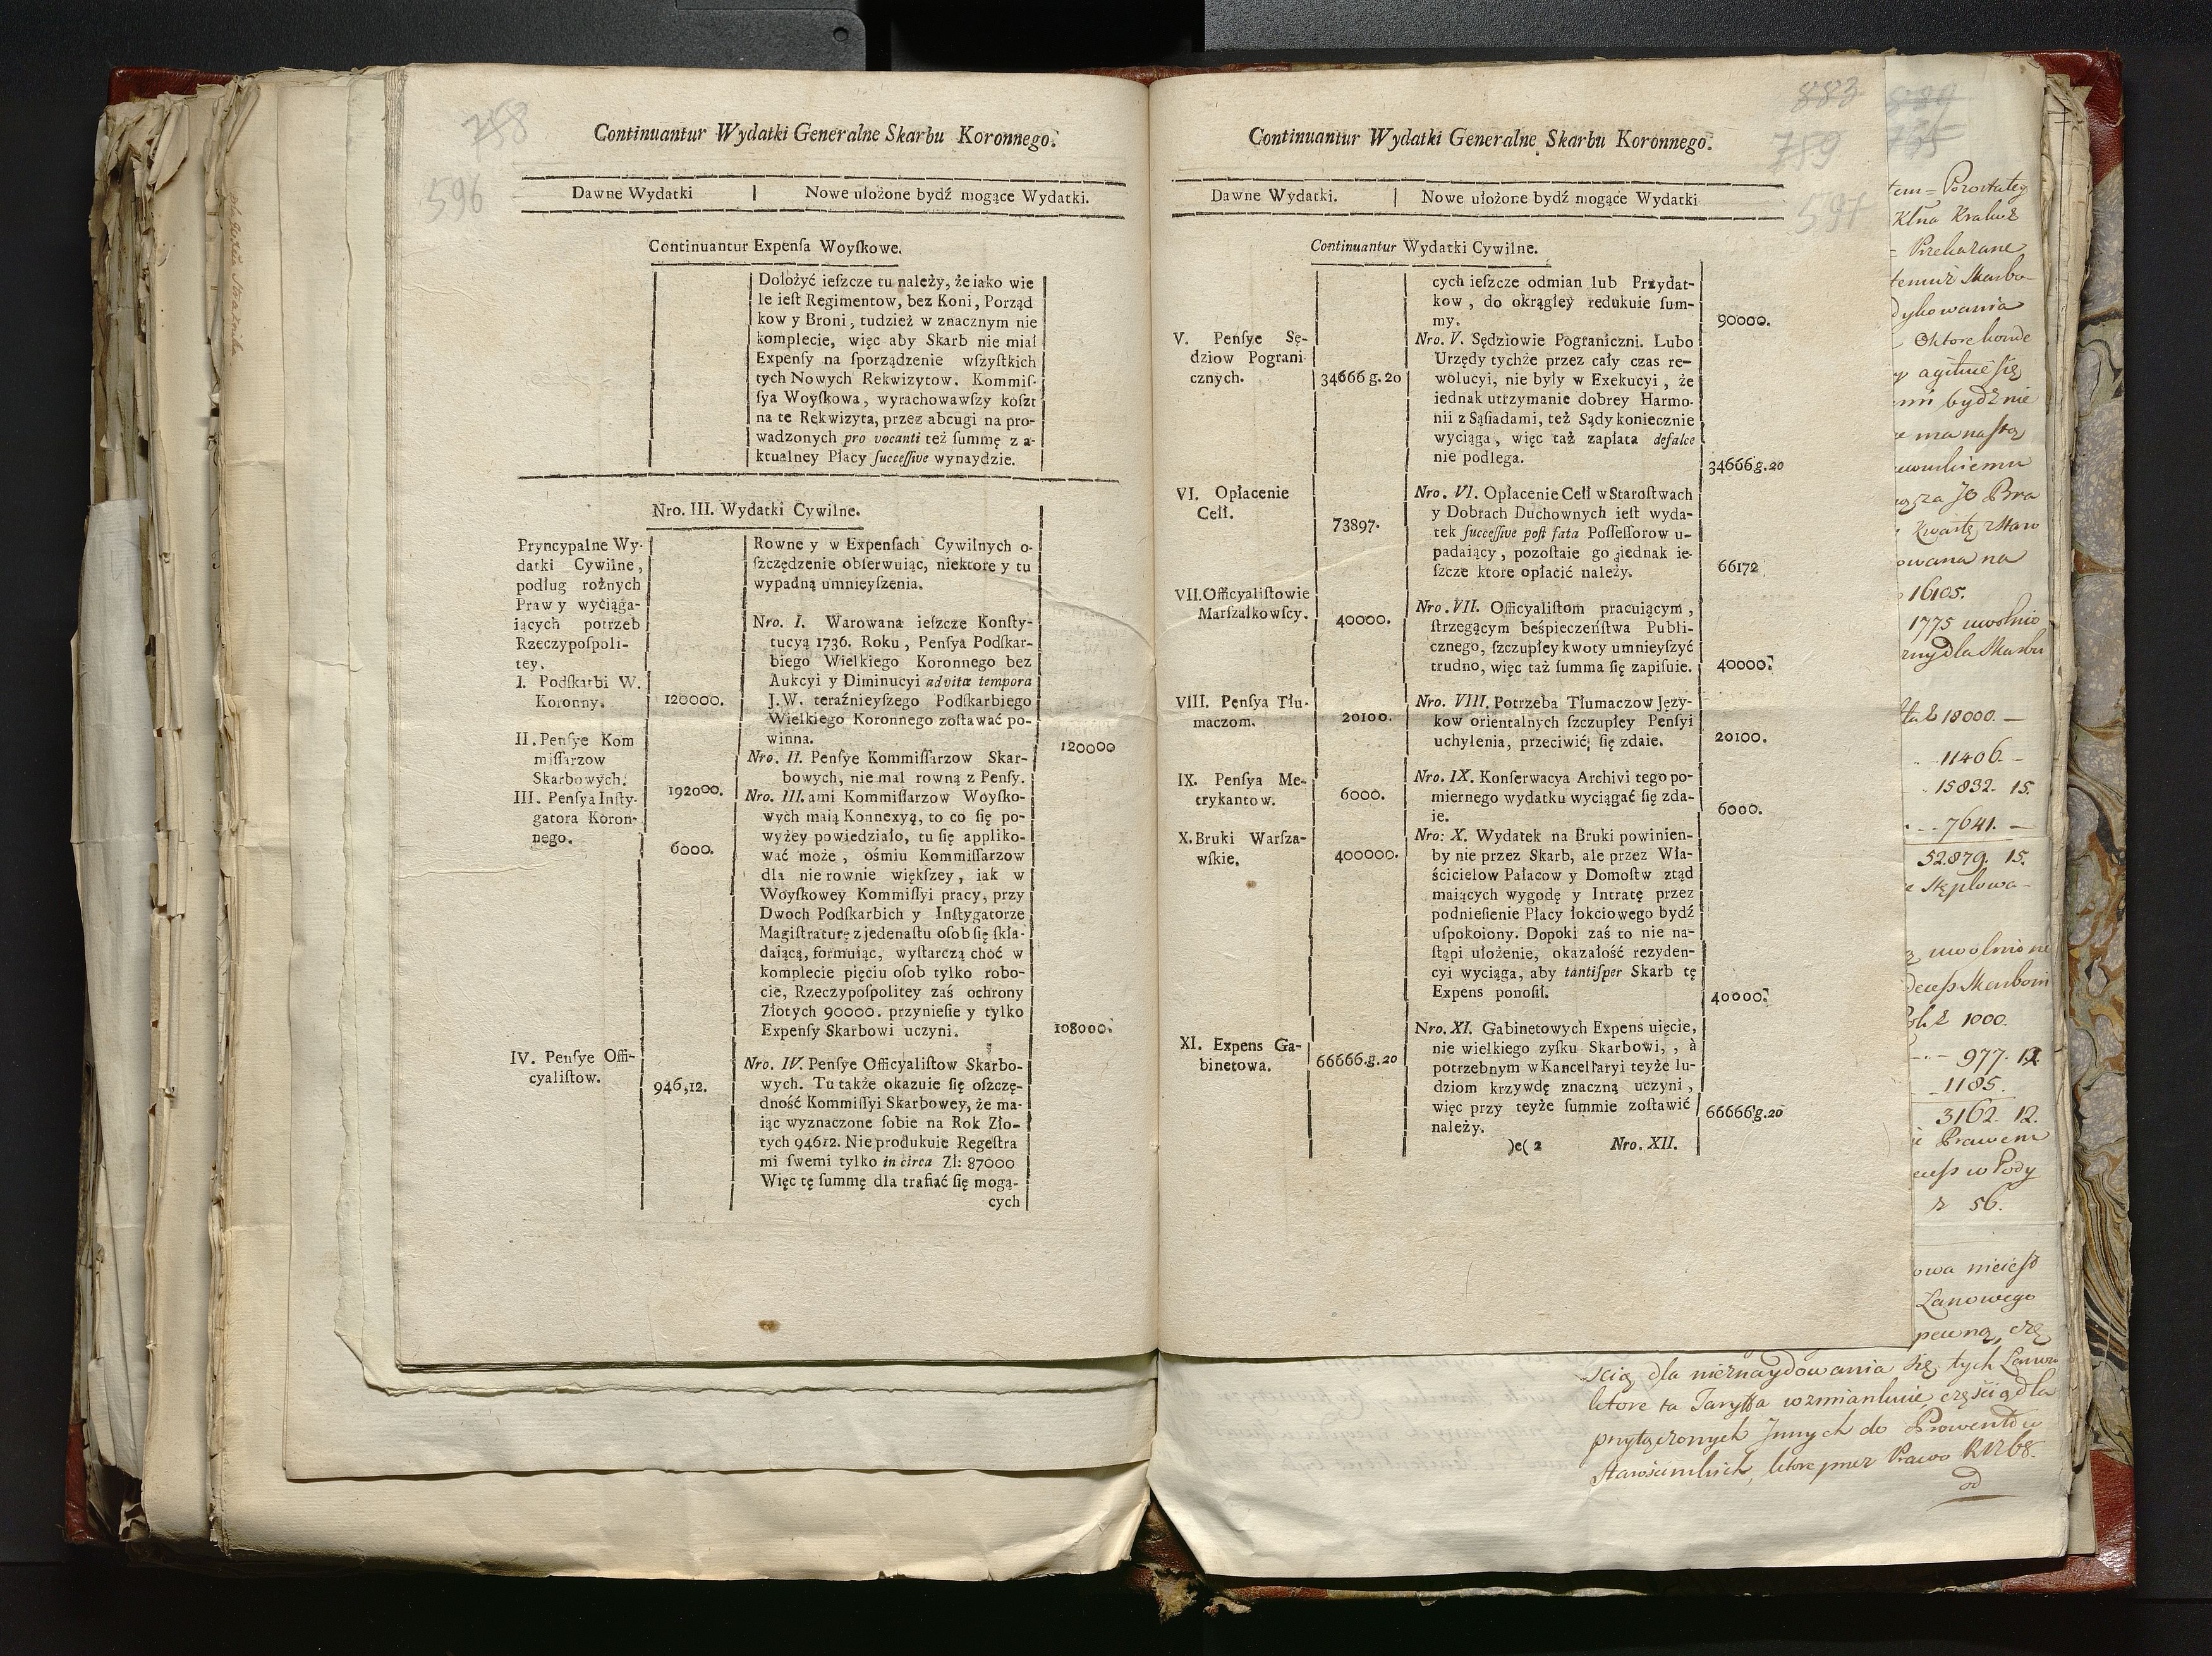 758
596
Continuantur Wydatki Generalne Skarbu Koronnego.
Dawne Wydatki | Nowe ułożone bydź mogące Wydatki.
Continuantur Expenſa Woyſkowe.
Dołożyć ieſzcze tu należy, że iako wie
le ieſt Regimentow, bez Koni, Porząd
kow y Broni, tudzież w znacznym nie
komplecie, więc aby Skarb nie miał
Expenſy na ſporządzenie wſzyſtkich
tych Nowych Rekwizytow. Kommiſ-
ſya Woyſkowa, wyrachowawſzy koſzt
na te Rekwizyta, przez abcugi na pro-
wadzonych pro vocanti też ſummę z a-
ktualney Płacy ſucceſſive wynaydzie.
Nro. III. Wydatki Cywilne.
Pryncypalne Wy-
datki Cywilne,
podług rożnych
Praw y wyciąga-
iących potrzeb
Rzeczypoſpoli-
tey.
Rowne y w Expenſach Cywilnych o-
ſzczędzenie obſerwuiąc, niektore y tu
wypadną umnieyſzenia.
I. Podſkarbi W.
Koronny.
120000.
Nro. I. Warowana ieſzcze Konſty-
tucyą 1736. Roku, Penſya Podſkar-
biego Wielkiego Koronnego bez
Aukcyi y Diminucyi ad vitæ tempora
J.W. teraźnieyſzego Podſkarbiego
Wielkiego Koronnego zoſtawać po-
winna.
120000
II. Penſye Kom
miſſarzow
Skarbowych.
192000.
Nro. II. Penſye Kommiſſarzow Skar-
bowych, nie mal rowną z Penſy.
III. Penſya Inſty-
gatora Koron-
nego.
6000.
Nro. III. ami Kommiſſarzow Woyſko-
wych maią Konnexyą, to co ſię po-
wyżey powiedziało, tu ſię appliko-
wać może, ośmiu Kommiſſarzow
dla nie rownie więkſzey, iak w
Woyſkowey Kommiſſyi pracy, przy
Dwoch Podſkarbich y Inſtygatorze
Magiſtraturę z jedenaſtu oſob ſię ſkła-
daiącą, formuiąc, wyſtarczą choć w
komplecie pięciu oſob tylko robo-
cie, Rzeczypoſpolitey zaś ochrony
Złotych 90000. przynieſie y tylko
Expenſy Skarbowi uczyni.
108000.
IV. Penſye Offi-
cyaliſtow.
946,12.
Nro. IV. Penſye Officyaliſtow Skarbo-
wych. Tu także okazuie ſię oſzczę-
dność Kommiſſyi Skarbowey, że ma-
iąc wyznaczone ſobie na Rok Zło-
tych 94612. Nie produkuie Regeſtra
mi ſwemi tylko in circa Zł: 87000
Więc tę ſummę dla trafiać ſię mogą-
cych
883
789
591
Continuantur Wydatki Generalne Skarbu Koronnego.
Dawne Wydatki. | Nowe ułożone bydź mogące Wydatki
Continuantur Wydatki Cywilne.
cych ieſzcze odmian lub Przydat-
kow, do okrągłey redukuie ſum-
my.
90000.
V. Penſye Sę-
dziow Pograni
cznych.
34666 g. 20
Nro. V. Sędziowie Pograniczni. Lubo
Urzędy tychże przez cały czas re-
wolucyi, nie były w Exekucyi, że
iednak utrzymanie dobrey Harmo-
nii z Sąſiadami, też Sądy koniecznie
wyciąga, więc taż zapłata defalce
nie podlega.
34666 g. 20
VI. Opłacenie
Cell.
73897.
Nro. VI. Opłacenie Cell w Staroſtwach
y Dobrach Duchownych ieſt wyda-
tek ſucceſſive poſt fata Poſſeſſorow u-
padaiący, pozoſtaie go jednak ie-
ſzcze ktore opłacić należy.
66172
VII. Officyaliſtowie
Marſzałkowſcy.
40000.
Nro. VII. Officyaliſtom pracuiącym,
ſtrzegącym beśpieczeńſtwa Publi-
cznego, ſzczupłey kwoty umnieyſzyć
trudno, więc taż ſumma ſię zapiſuie.
40000.
VIII. Penſya Tłu-
maczom.
20100.
Nro. VIII. Potrzeba Tłumaczow Języ-
kow orientalnych ſzczupłey Penſyi
uchylenia, przeciwić, ſię zdaie.
20100.
IX. Penſya Me-
trykantow.
6000.
Nro. IX. Konſerwacya Archivi tego po-
miernego wydatku wyciągać ſię zda-
ie.
6000.
X. Bruki Warſza-
wſkie.
400000.
Nro: X. Wydatek na Bruki powinien-
by nie przez Skarb, ale przez Wła-
ścicielow Pałacow y Domoſtw ztąd
maiących wygodę y Intratę przez
podnieſienie Płacy łokciowego bydź
uſpokoiony. Dopoki zaś to nie na-
ſtąpi ułożenie, okazałość rezyden-
cyi wyciąga, aby tantiſper Skarb tę
Expens ponoſił.
40000.
XI. Expens Ga-
binetowa.
66666.g.20
Nro. XI. Gabinetowych Expens uięcie,
nie wielkiego zyſku Skarbowi,, à
potrzebnym w Kancellaryi teyże lu-
dziom krzywdę znaczną uczyni,
więc przy teyże ſummie zoſtawić
należy.
66666 g.20
)c( 2 Nro. XII.
Pozostałey
Przekazane
dykowania
agituie się
bydź nie
za Jo Bra
owana na
16105.
1775 uwolnio
dla Skarbu
18000. —
11406. —
15832. 15.
7641. —
52.879. 15.
uwolnione
1000.
977. 12
1185.
3162. 12.
Prawem
56.
Łanowego
pewną, czę
ścią dla nieznaydowania się tych Łanow
ktore ta Taryffa wzmiankuie, częścią dla
przyłączonych Innych do Prowentow
Starościńskich, ktore przez Prawo R 1768.
od